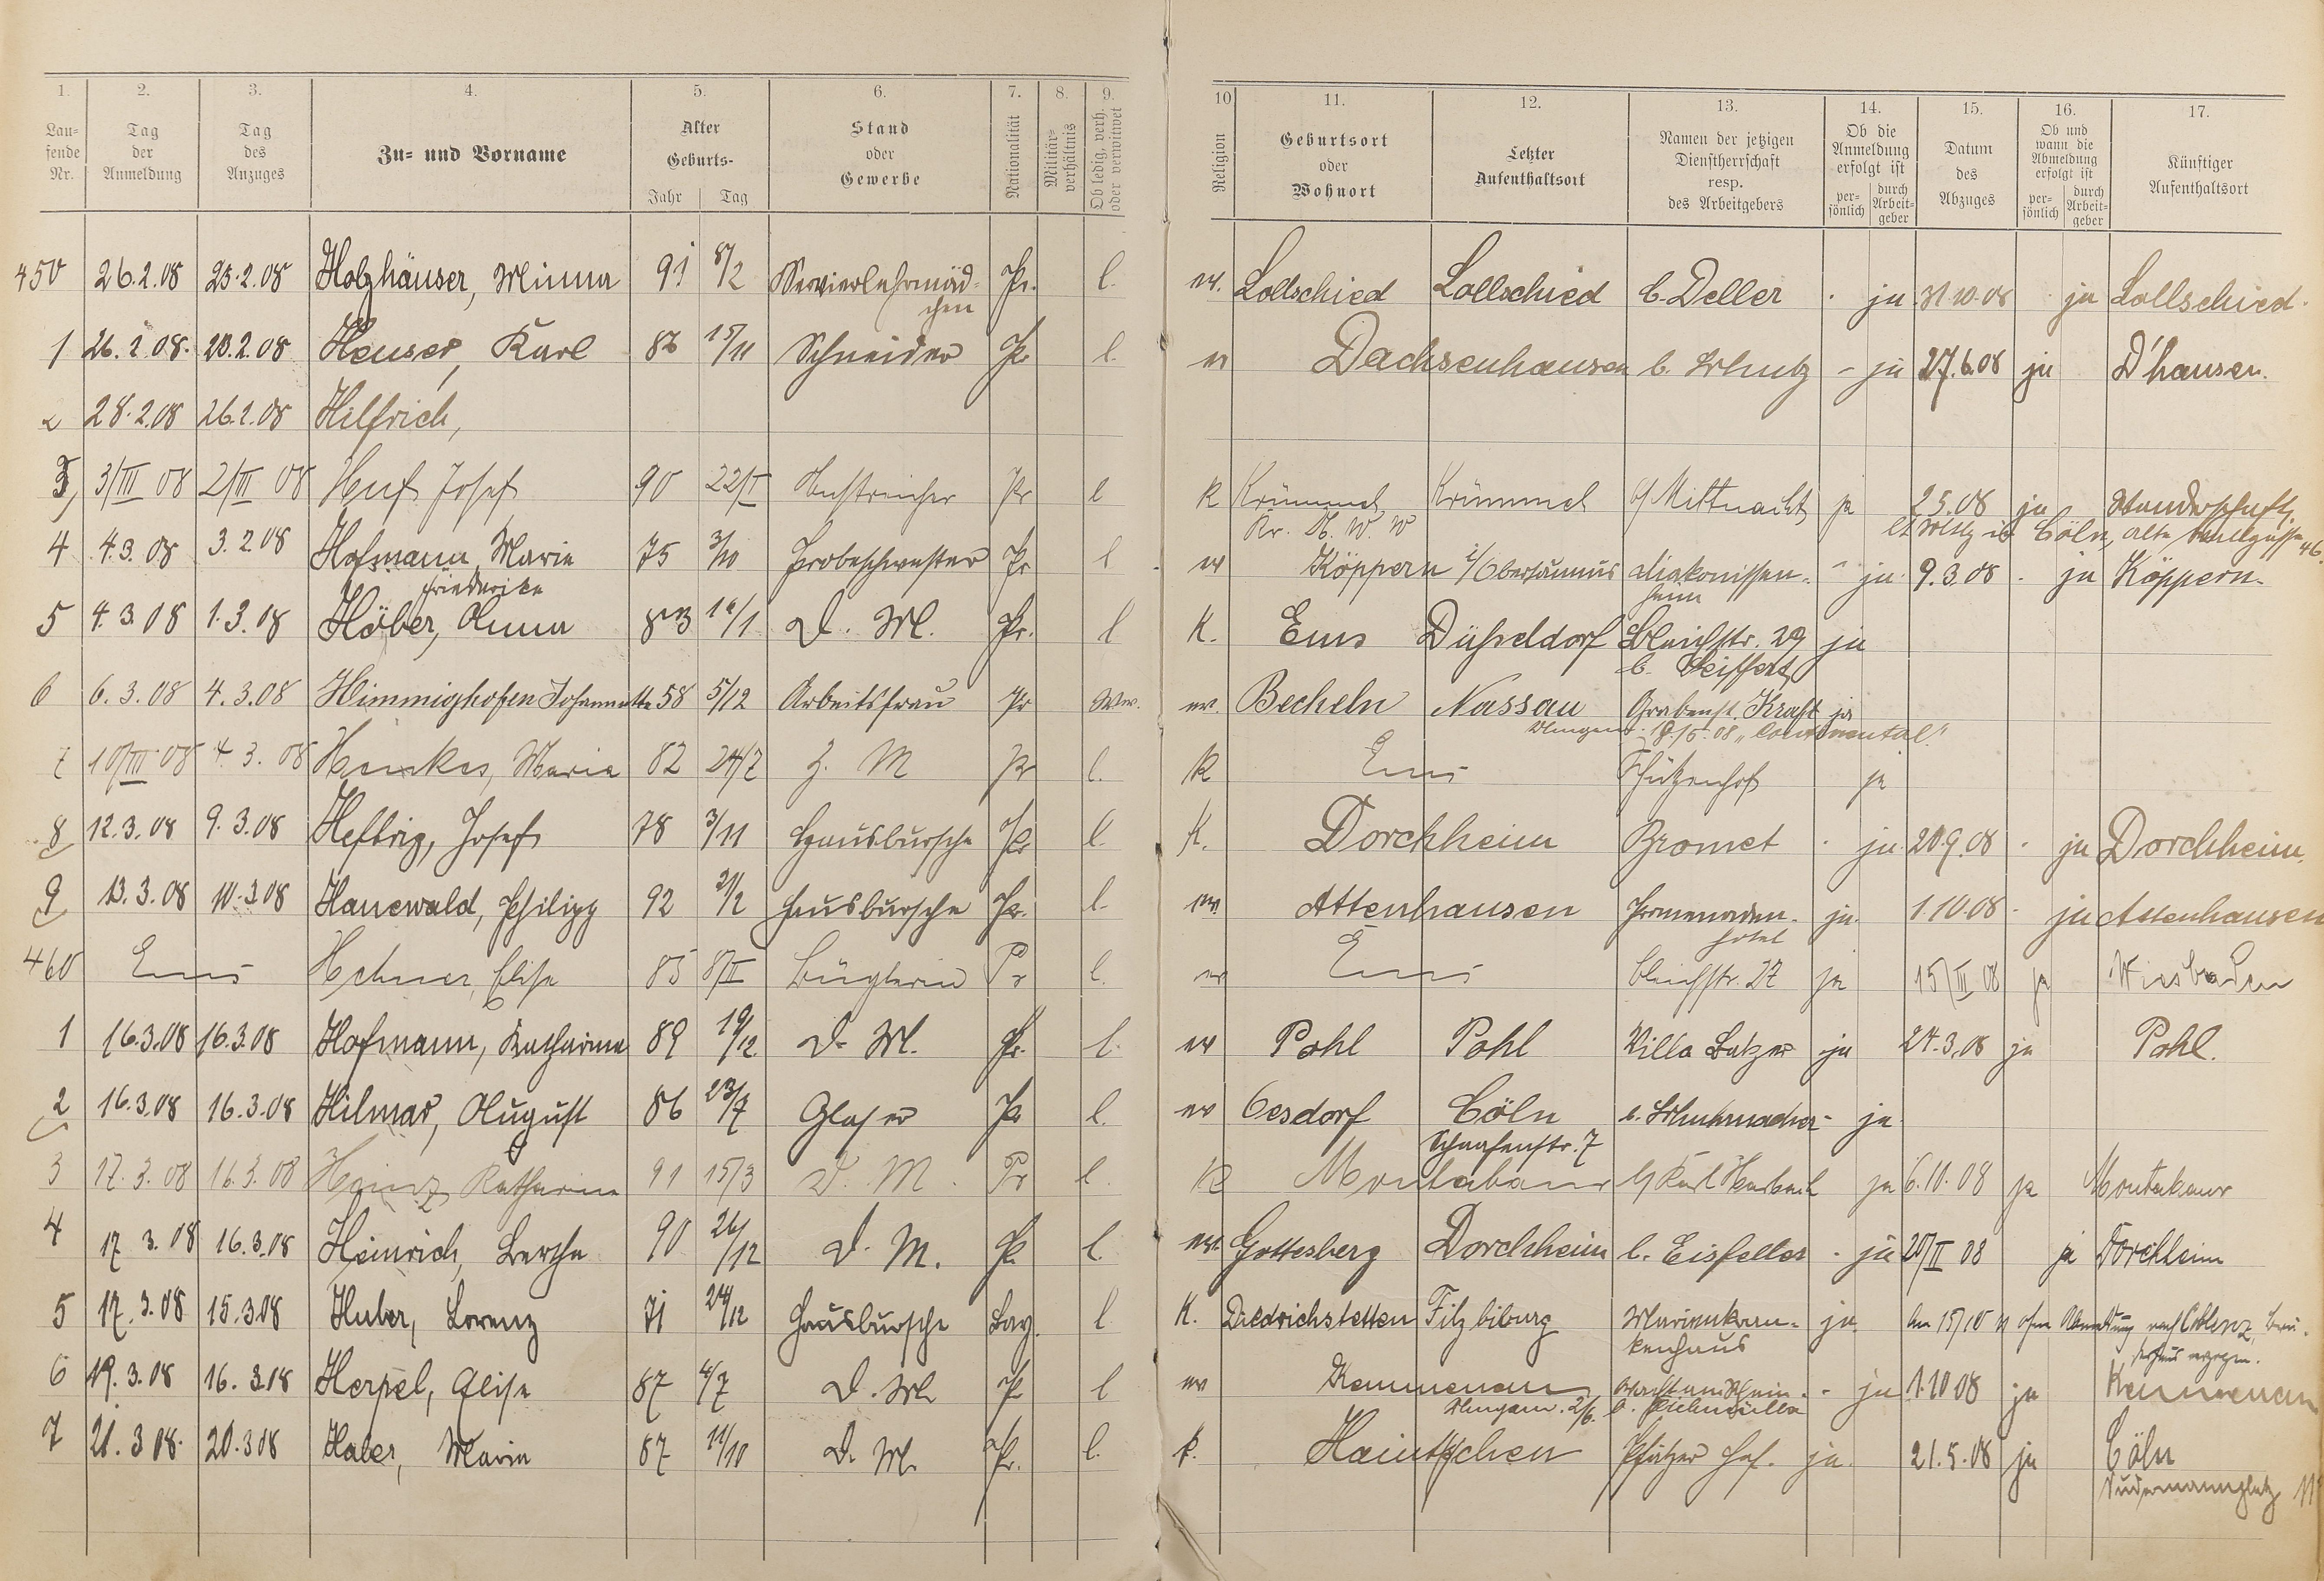 1. 2. 3. 4. 5. 6. 7. 8. 9. 10 11. 12. 13. 14. 15. 16. 17.
Lau-fende Nr. Tag der Anmeldung Tag des Anzuges Zu- und Vorname Alter Geburts- Jahr Tag Stand oder Gewerbe Nationalität Militär-verhältnis Ob ledig, verh. oder verwitwet Religion Geburtsort oder Wohnort Letzter Aufenthaltsort Namen der jetzigen Dienstherrschaft resp. des Arbeitgebers Ob die Anmeldung erfolgt ist per-sönlich durch Arbeit-geber Datum des Abzuges Ob und wann die Abmeldung erfolgt ist per-sönlich durch Arbeit-geber Künftiger Aufenthaltsort
450 26.2.08 25.2.08 Holzhäuser, Minna 91 8/2 Servierlehrmäd- Pr. l. ev. Lollschied Lollschied b. Deller . ja 31.10.08 . ja Lollschied.
chen
1 26.2.08. 20.2.08 Heuser, Karl 86 15/11 Schneider Pr l. ev Dachsenhausen b. Schutz - ja 27.6.08 ja D'hausen.
2 28.2.08 26.2.08 Hilfrich,
3, 3/III 08 2/III 08 Huf Josef 90 22/I Anstreicher Pr l K Krümmel Krümmel b/ Mittnacht ja 2.5.08 ja Wanderschaft
Kr. U. W. W Cöln, alte 46.
4 4.3.08 3.2.08 Hofmann, Marie 75 3/10 Probeschwester Pr l ev Köppern i/Obertaunus Diakonissen- - ja 9.3.08 . ja Köppern.
Friederike heim
5 4.3.08 1.3.08 Höber, Anna 83 16/1 D. M. Pr. l K. Ems Düsseldorf Bleichstr. 29 ja
b. Seiffert
6 6.3.08 4.3.08 Himmighofen Johannette 58 5/12 Arbeitsfrau Pr Ww. ev. Becheln Nassau Grabenst. Kraft ja
18./5.08 "Continental".
7 10/III 08 4.3.08 Henkes, Marie 82 24/7 Z. M Pr l. K Ems Schützenhof ja
8 12.3.08 9.3.08 Heftrig, Josef 78 3/11 Hausbursche Pr l. K. Dorchheim Bromet . ja 20.9.08 . ja Dorchheim.
9 13.3.08 10.3.08 Hanewald, Philipp 92 21/2 Hausbursche Pr. l. ev. Attenhausen Promenaden- ja. 1.10.08 . ja Attenhausen
hotel
460 Ems Hehner, Elise 85 8/II Büglerin Pr l. ev Ems Bleichstr. 27 ja 15/III 08 ja Wiesbaden
1 16.3.08 16.3.08 Hofmann, Katharina 89 19/12 D. M. Pr. l. ev Pohl Pohl Villa Balzer ja 24.3.08 ja Pohl.
2 16.3.08 16.3.08 Hilmar, August 86 23/7 Glaser Pr l. ev Oesdorf Cöln b. Schuhmacher - ja
Schaafenstr. 7
3 17.3.08 16.3.08 Heinz Katharina 91 15/3 D. M. Pr l. K Montabaur b/ Karl Harbach ja 6.10.08 ja Montabaur
4 17.3.08 16.3.08 Heinrich, Bertha 90 26/12 D. M. Pr l. ev. Gottesberg Dorchheim b. Eisfeller . ja 20/II 08 ja Dorchheim
5 17.3.08 15.3.08 Huber, Lorenz 71 24/12 Hausbursche Bay. l. K. Diedrichstetten Filzbiburg Marienkran- ja. Am 15/10 ohne Abmeldung nach Coblenz,
kenhaus verzogen.
6 19.3.08 16.3.08 Herpel, Elise 87 4/7 D. M. Pr l ev Kemmenau - ja 1.10.08 ja Kemmenau
2/6.
7 21.3.08. 20.3.08 Haler, Maria 87 11/10 D. M. Pr. l. k. Haintchen Pfälzer Hof. ja. 21.5.08 ja Cöln